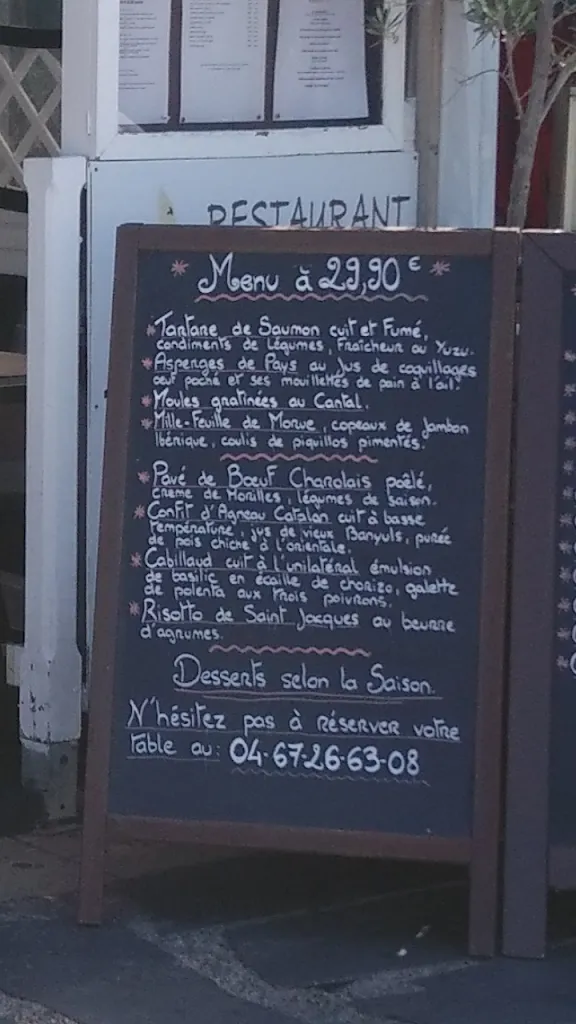 RESTAURANT
* Menu à 29,90 € *
* Tartare de Saumon cuit et Fumé,
condiments de Légumes, Fraîcheur au Yuzu.
* Asperges de Pays au Jus de coquillages
oeuf poché et ses mouillettes de pain à l'ail.
* Moules gratinées au Cantal.
* Mille-Feuille de Morue, copeaux de Jambon
Ibérique, coulis de piquillos pimentés.
* Pavé de Boeuf Charolais poêlé,
crème de Morilles, légumes de saison.
* Confit d'Agneau Catalan cuit à basse
température, jus de vieux Banyuls, purée
de pois chiche à l'orientale.
* Cabillaud cuit à l'unilatéral émulsion
de basilic en écaille de chorizo, galette
de polenta aux trois poivrons.
* Risotto de Saint Jacques au beurre
d'agrumes.
Desserts selon la Saison.
N'hésitez pas à réserver votre
table au: 04-67-26-63-08